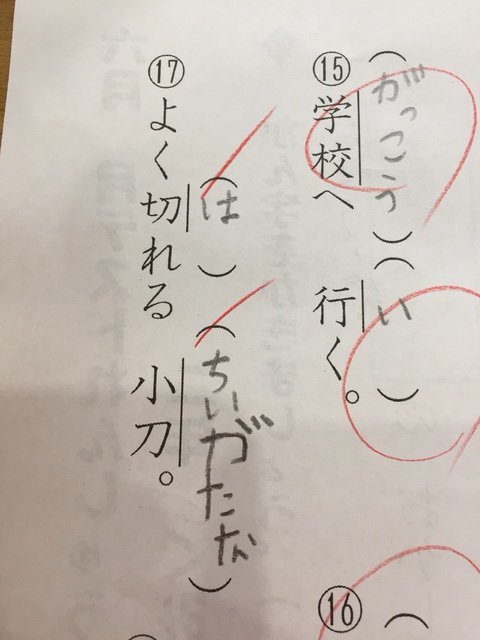 ⑮
(がっこう)(い)
学校へ 行く。
⑯
(
⑰
(は)(ちいがたな)
よく切れる 小刀。